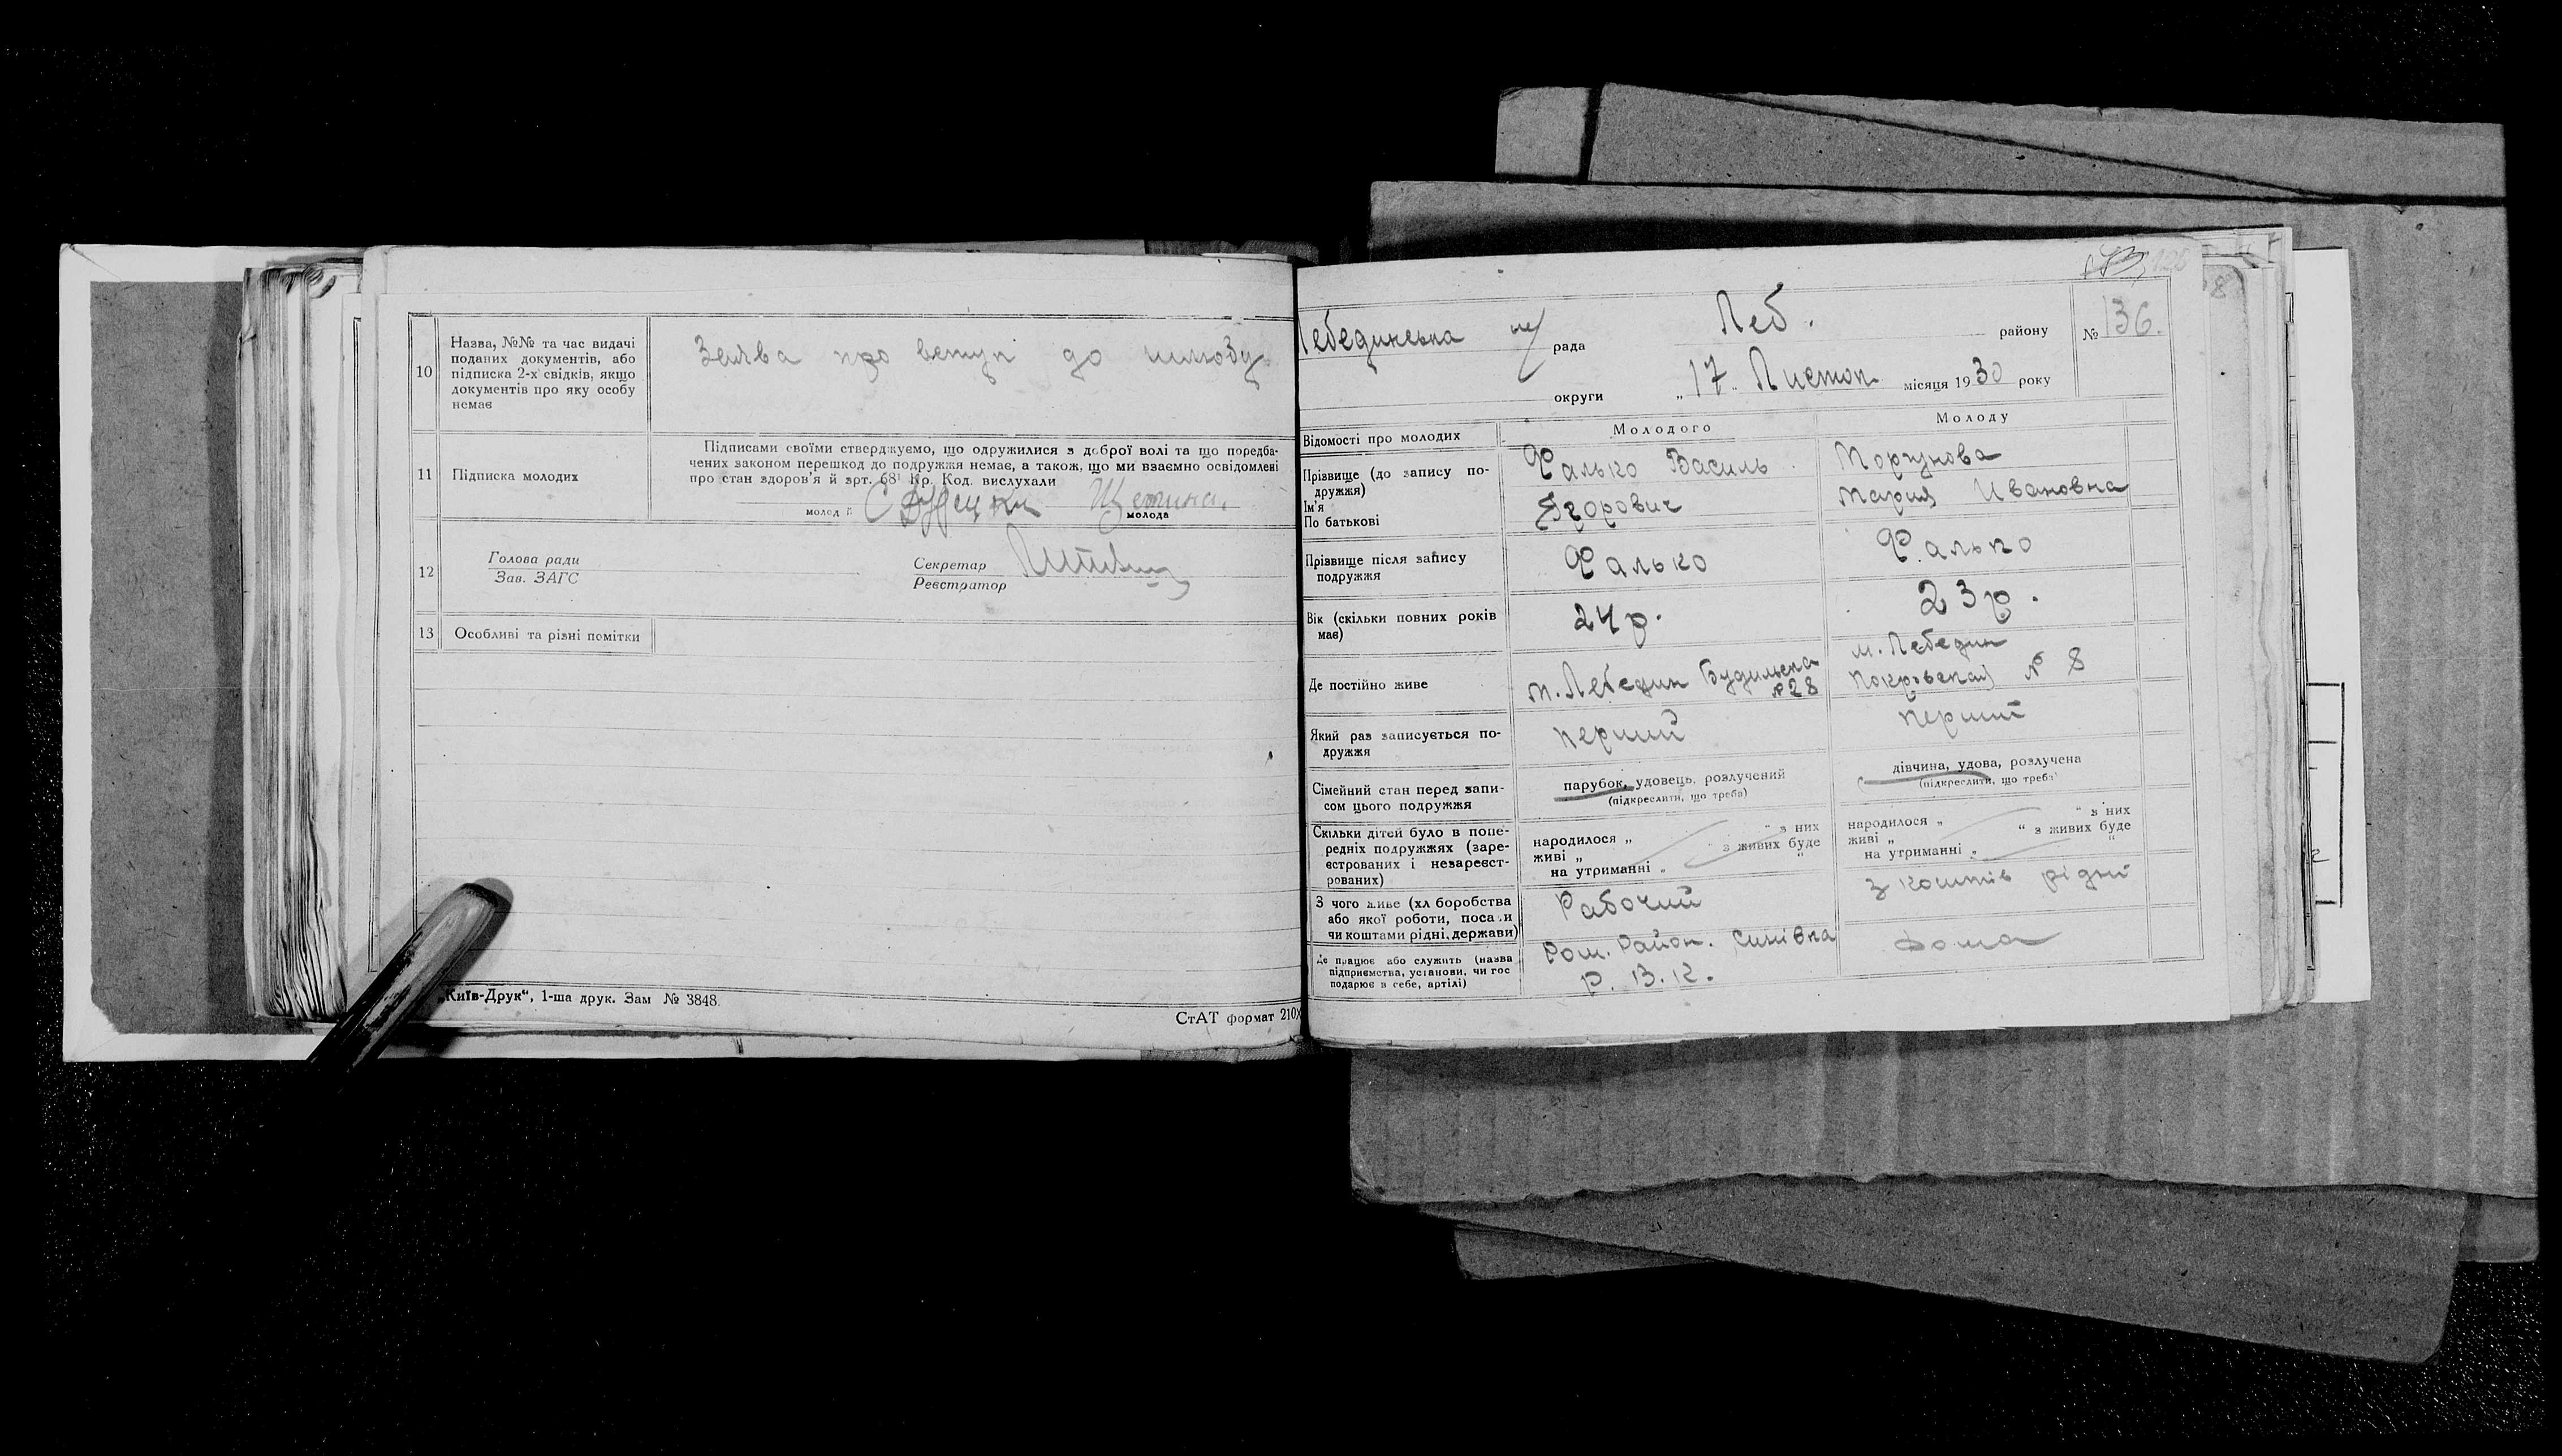 10
Назва, №№ та час видачі
поданих документів, або
підписка 2-х свідків, якщо
документів про яку особу
немає
Заява про вступ до шлюбу
11
Підписка молодих
Підписами своїми стверджуємо, що одружилися з доброї волі та що передба-
чених законом перешкод до подружжя немає, а також, що ми взаємно освідомлені
про стан здоров'я й арт. 68¹ Кр. Код. вислухали
молодій
Щетина.
молода
12
Голова ради
Зав. ЗАГС
Секретар
Реєстратор
13
Особливі та різні помітки
„Київ-Друк“, 1-ша друк. Зам № 3848.
СтАТ формат 210×
Лебединська
рада
Леб.
району
№ 136.
округи
„17„ Листоп. місяця 1930 року
Відомості про молодих
Молодого
Молоду
Прізвище (до запису по-
дружжя)
Ім'я
По батькові
Фалько Василь
Єгорович
Моргунова
Мария Ивановна
Прізвище після запису
подружжя
Фалько
Фалько
Вік (скільки повних років
має)
24 р.
23 р.
Де постійно живе
м. Лебедин Будильська
№ 28
м. Лебедин
Покровская № 8
Який раз записується по-
дружжя
Перший
Перший
Сімейний стан перед запи-
сом цього подружжя
парубок, удовець, розлучений
(підкреслити, що треба)
дівчина, удова, розлучена
(підкреслити, що треба)
Скільки дітей було в попе-
редніх подружжях (заре-
єстрованих і незареєст-
рованих)
народилося „ “ з них
живі „ “ з живих буде
на утриманні „ “
народилося „ “ з них
живі „ “ з живих буде
на утриманні „ “
З чого живе (хліборобства
або якої роботи, посади
чи коштами рідні, держави)
Рабочий
З коштів рідні
Де працює або служить (назва
підприємства, установи, чи гос
подарює в себе, артілі)
Ром. Район. Синівка
Р. В. К.
Дома